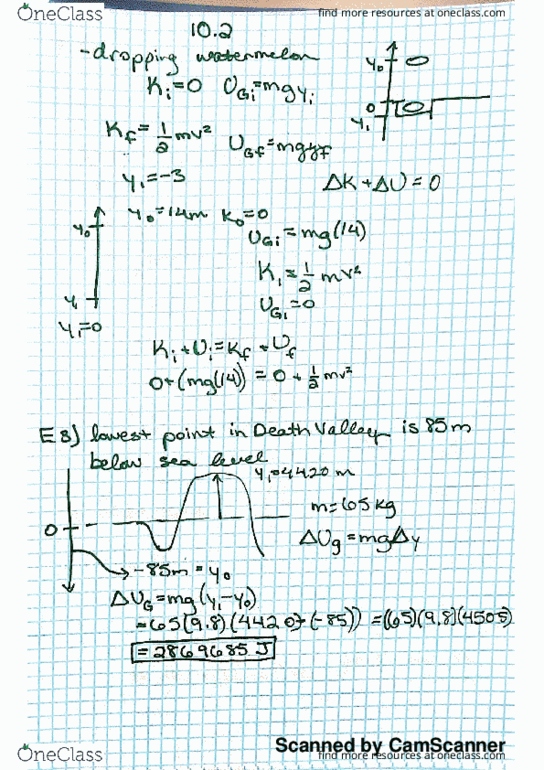 OneClass
find more resources at oneclass.com
10.2
-dropping watermelon
Ki=0 UGi=mgyi
y0
0
y1
Kf=1/2 mv² UGf=mgyf
y1=-3
ΔK+ΔU=0
y0=14m K0=0
y0
UGi=mg(14)
K1=1/2 mv²
UG1=0
y1
y1=0
Ki+Ui=Kf+Uf
0+(mg(14))=0+1/2 mv²
E8) lowest point in Death Valley is 85m
below sea level
y1=4420 m
m=65 kg
0
ΔUg=mgΔy
-85m=y0
ΔUG=mg(y1-y0)
=65(9.8)(4420-(-85))=(65)(9.8)(4505)
=2869685 J
Scanned by CamScanner
OneClass
find more resources at oneclass.com